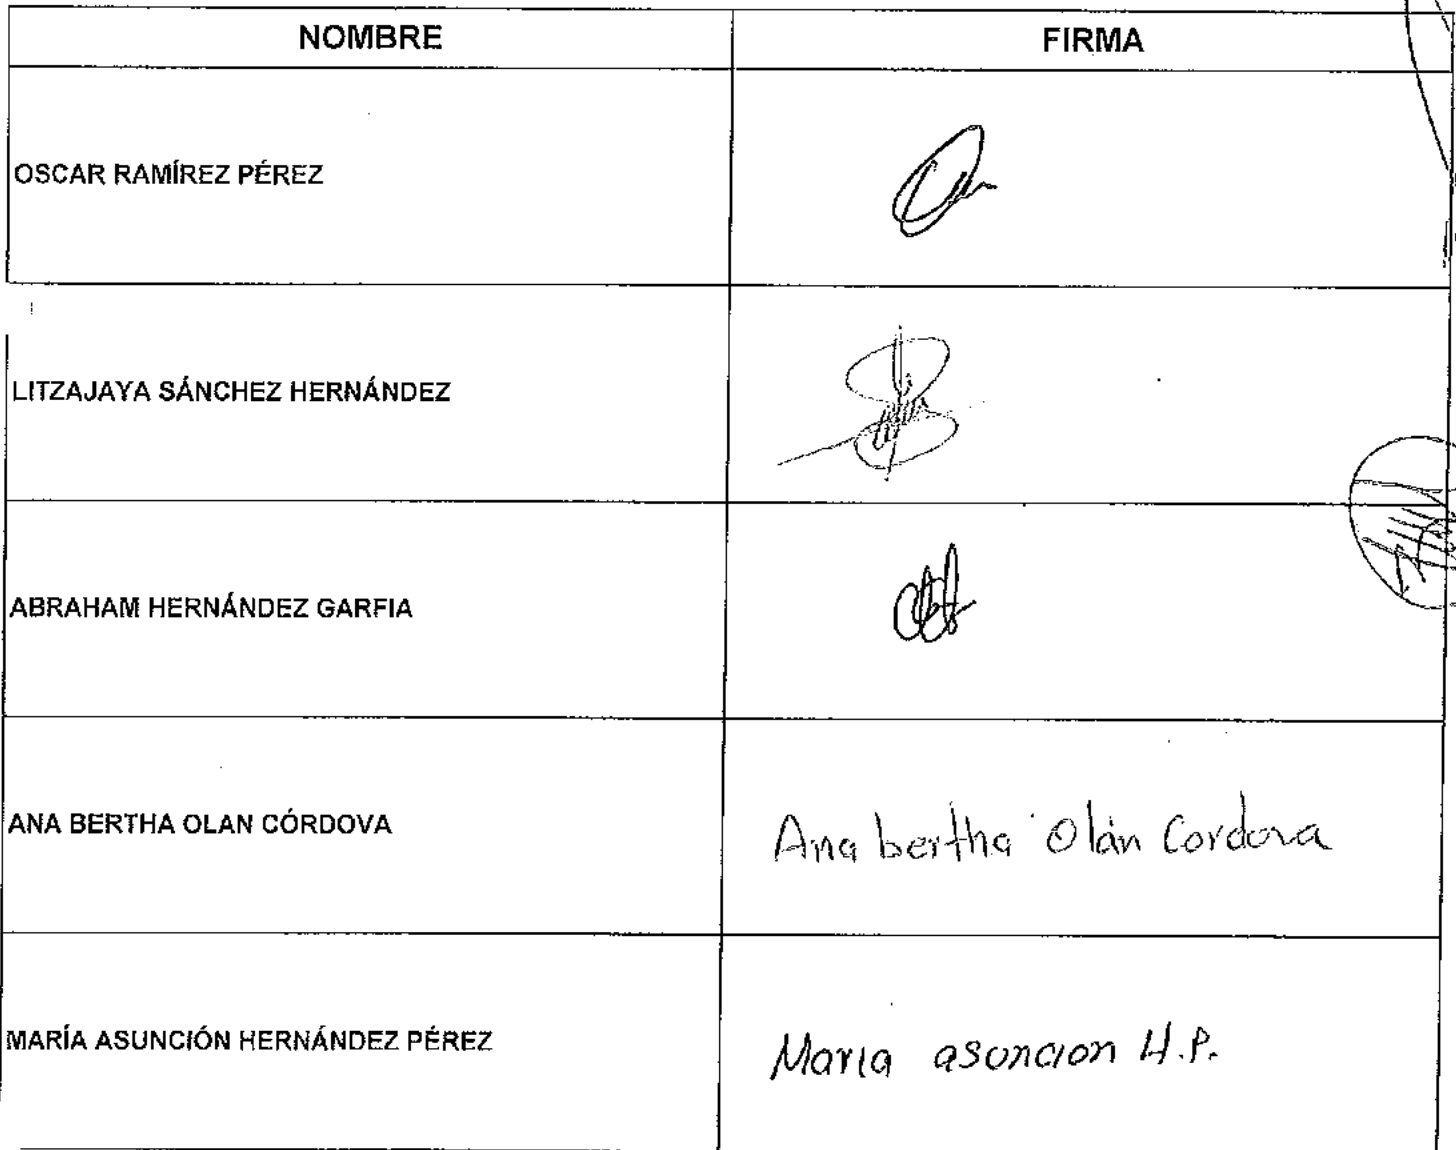 NOMBRE FIRMA
OSCAR RAMÍREZ PÉREZ
LITZAJAYA SÁNCHEZ HERNÁNDEZ
ABRAHAM HERNÁNDEZ GARFIA
ANA BERTHA OLAN CÓRDOVA Ana bertha Olán Cordova
MARÍA ASUNCIÓN HERNÁNDEZ PÉREZ Maria asuncion H.P.